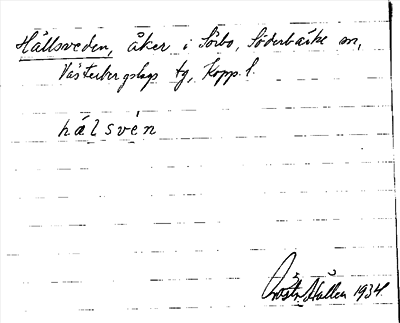 Hållsveden, åker i Sörbo, Söderbärke sn,
Västerbergslags tg, Kopp. l.
hålsvén
Stållen 1934